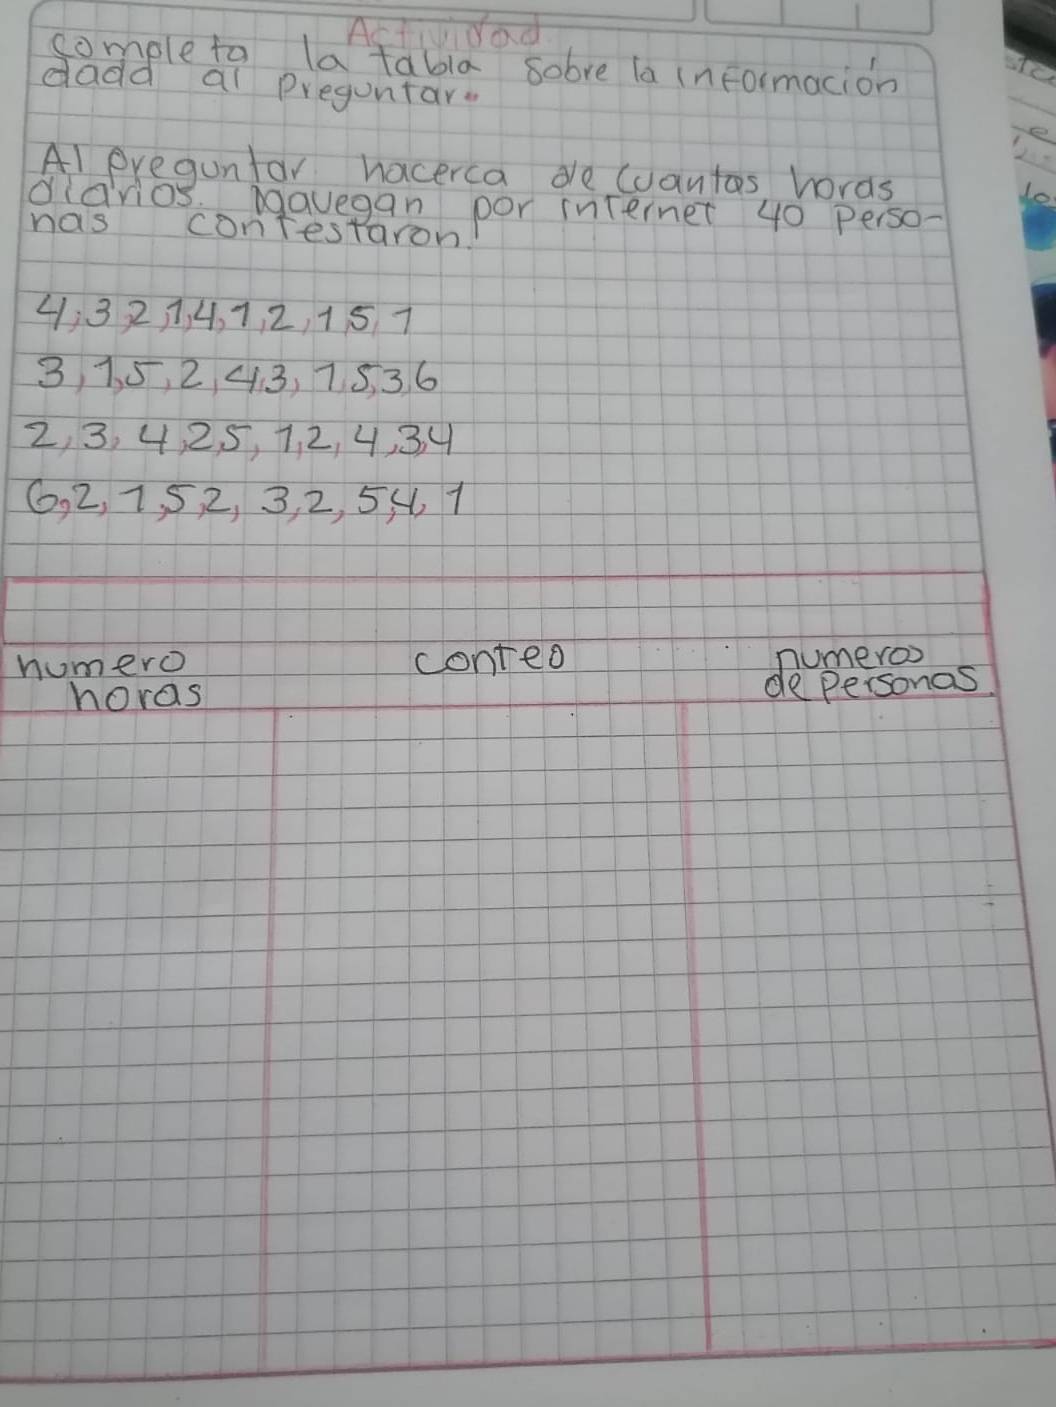 Actividad
completa la tabla sobre la información
dada al preguntar.
Al preguntar hacerca de cuantas horas
diarios. navegan por internet 40 perso-
nas contestaron!
4,3,2,1,4,1,2,1,5,1
3,1,5,2,4,3,1,5,3,6
2,3,4,2,5,1,2,4,3,4
6,2,1,5,2,3,2,5,4,1
numero conteo numeros
horas de personas.